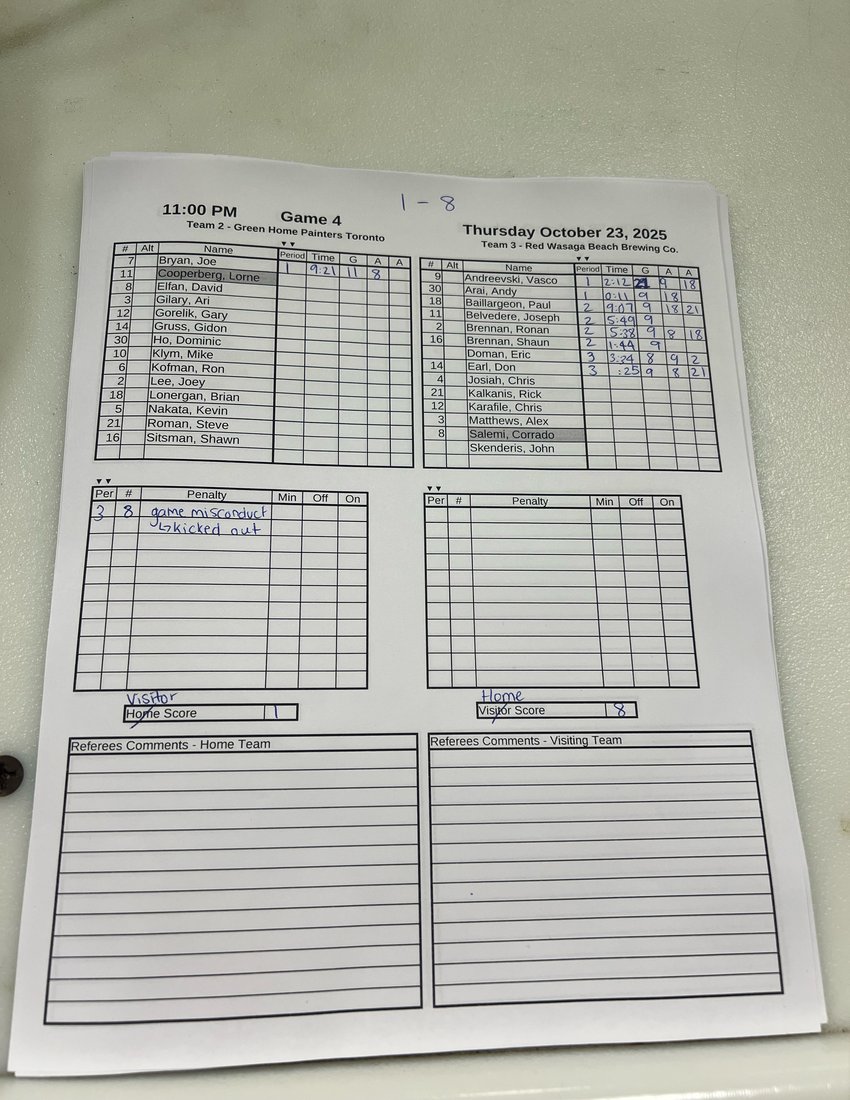 1 - 8
11:00 PM Game 4
Team 2 - Green Home Painters Toronto
# Alt Name Period Time G A A
7 Bryan, Joe 1 9:21 11 8
11 Cooperberg, Lorne
8 Elfan, David
3 Gilary, Ari
12 Gorelik, Gary
14 Gruss, Gidon
30 Ho, Dominic
10 Klym, Mike
6 Kofman, Ron
2 Lee, Joey
18 Lonergan, Brian
5 Nakata, Kevin
21 Roman, Steve
16 Sitsman, Shawn
Thursday October 23, 2025
Team 3 - Red Wasaga Beach Brewing Co.
# Alt Name Period Time G A A
9 Andreevski, Vasco 1 2:12 9 18
30 Arai, Andy 1 0:11 9 18
18 Baillargeon, Paul 2 9:07 9 18 21
11 Belvedere, Joseph 2 5:49 9
2 Brennan, Ronan 2 5:38 9 8 18
16 Brennan, Shaun 2 1:44 9
Doman, Eric 3 3:24 8 9 2
14 Earl, Don 3 :25 9 8 21
4 Josiah, Chris
21 Kalkanis, Rick
12 Karafile, Chris
3 Matthews, Alex
8 Salemi, Corrado
Skenderis, John
Per # Penalty Min Off On
3 8 game misconduct
↳kicked out
Per # Penalty Min Off On
Visitor
Home Score 1
Home
Visitor Score 8
Referees Comments - Home Team
Referees Comments - Visiting Team